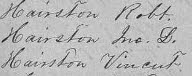 Hairston Robt.
Hairston Jno. L.
Hairston Vincent